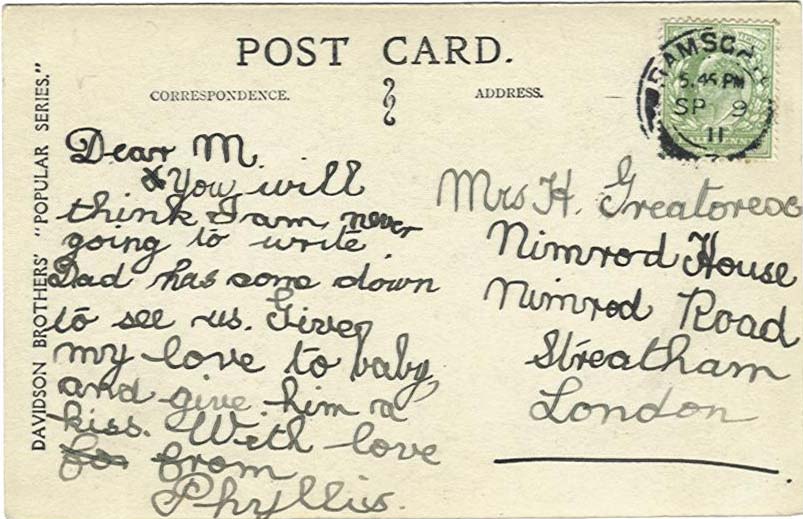 POST CARD.
CORRESPONDENCE.
ADDRESS.
DAVIDSON BROTHERS' "POPULAR SERIES."
5.45 PM
SP 9
11
Dear M.
You will
think I am never
going to write
Dad has come down
to see us. Give
my love to baby
and give him a
kiss. With love
for from
Phyllis.
Mrs H. Greatorex
Nimrod House
Nimrod Road
Streatham
London